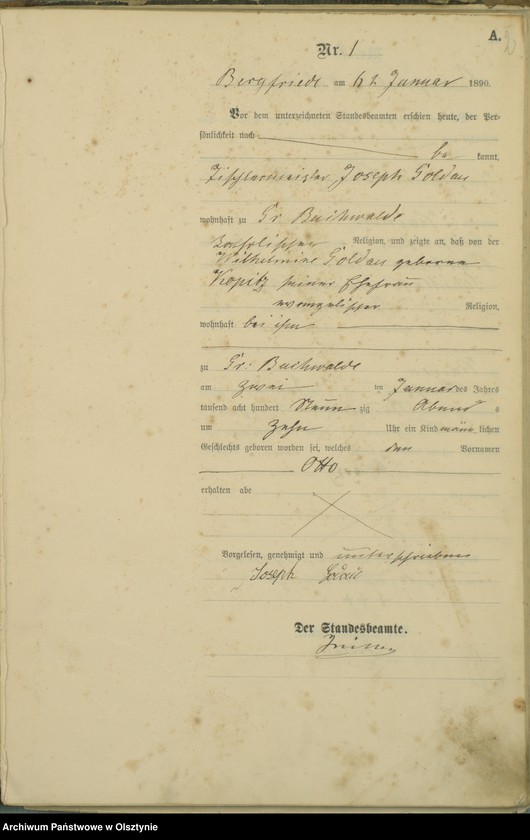 A.
Nr. 1
Bergfriede am 6ten Januar 1890.
Vor dem unterzeichneten Standesbeamten erschien heute, der Per-
sönlichkeit nach
be kannt,
Tischlermeister Joseph Goldau
wohnhaft zu Gr. Buchwalde
katholischer Religion, und zeigte an, daß von der
Wilhelmine Goldau geborene
Kopitz seiner Ehefrau
evangelischer Religion,
wohnhaft bei ihm
zu Gr. Buchwalde
am zwei ten Januar des Jahres
tausend acht hundert Neun zig Abend s
um Zehn Uhr ein Kind männ lichen
Geschlechts geboren worden sei, welches den Vornamen
Otto
erhalten abe
Vorgelesen, genehmigt und unterschrieben
Joseph
Der Standesbeamte.
Archiwum Państwowe w Olsztynie